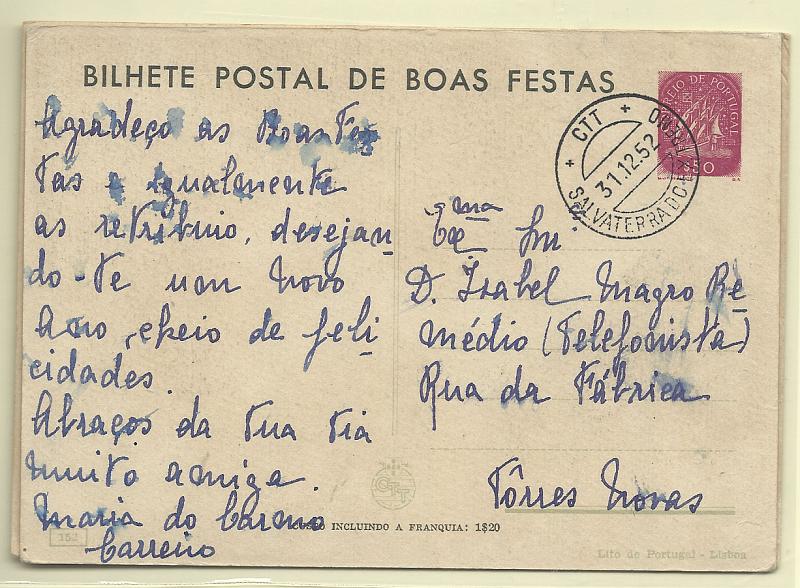 BILHETE POSTAL DE BOAS FESTAS
Agradeço as Boas Fes-
tas e igualmente
as retribuio, desejan-
do-te um Novo
Ano, cheio de feli-
cidades.
Abraços da tua tia
muito amiga.
Maria do Carmo
Carreiro
152
CTT
31.12.52
SALVATERRA DE
DE PORTUGAL
50
Exma Snr.
D. Izabel Magro Re-
médio (Telefonista)
Rua da Fábrica
Tôrres Novas
CTT
CUSTO INCLUINDO A FRANQUIA: 1$20
Lito de Portugal - Lisboa